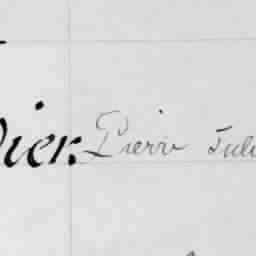 ier. Pierre Juli